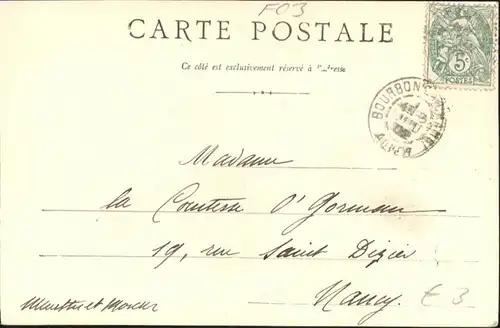 F03
CARTE POSTALE
Ce côté est exclusivement réservé à l'adresse
5c
POSTES
BOURBON
ALLIER
Madame
la Comtesse O'Gorman
19, rue Saint Dizier
Nancy.
£ 3